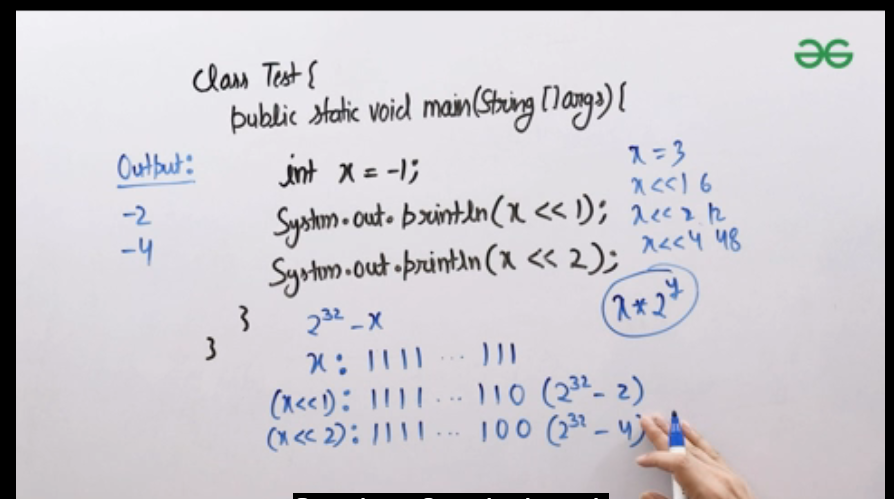 Class Test {
public static void main(String []args) {
Output:
int x = -1;
x = 3
-2
System.out.println(x << 1);
x<<1 6
-4
x<<2 12
System.out.println(x << 2);
x<<4 48
}
}
2^32 - x
x * 2^y
x: 1111 ... 111
(x<<1): 1111 ... 110 (2^32 - 2)
(x<<2): 1111 ... 100 (2^32 - 4)